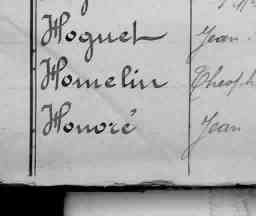 Hoguet Jean
Homelin Théoph
Honoré Jean